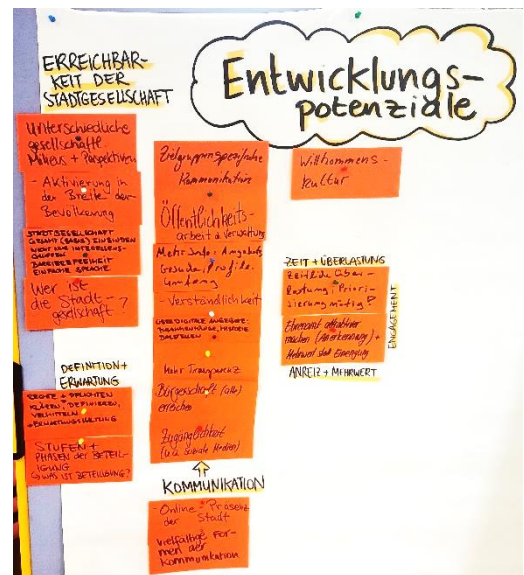 Entwicklungs-
potenziale
ERREICHBAR-
KEIT DER
STADTGESELLSCHAFT
Unterschiedliche
gesellschaftl.
Milieus + Perspektiven
- Aktivierung in
der Breite der
Bevölkerung
STADTGESELLSCHAFT
EINBINDEN
NICHT NUR
GRUPPEN
BARRIEREFREIHEIT
EINFACHE SPRACHE
Wer ist
die Stadt-
gesellschaft?
DEFINITION +
ERWARTUNG
RECHTE + PFLICHTEN
KLÄREN, DEFINIEREN,
VERMITTELN
STUFEN +
PHASEN DER BETEIL-
IGUNG
WAS IST BETEILIGUNG?
Zielgruppenspezifische
Kommunikation
Öffentlichkeits-
arbeit d. Verwaltung
Mehr Info, Angebote
- Verständlichkeit
Mehr Transparenz
Bürgerschaft (alle)
erreichen
Zugänglichkeit
(u.a. soziale Medien)
KOMMUNIKATION
- Online-Präsenz
der Stadt
vielfältige For-
men der
Kommunikation
Willkommens-
kultur
ZEIT + ÜBERLASTUNG
Zeitliche Über-
lastung, Priori-
sierung nötig?
Ehrenamt attraktiver
machen (Anerkennung) +
Mehrwert statt
ENGAGEMENT
ANREIZ + MEHRWERT